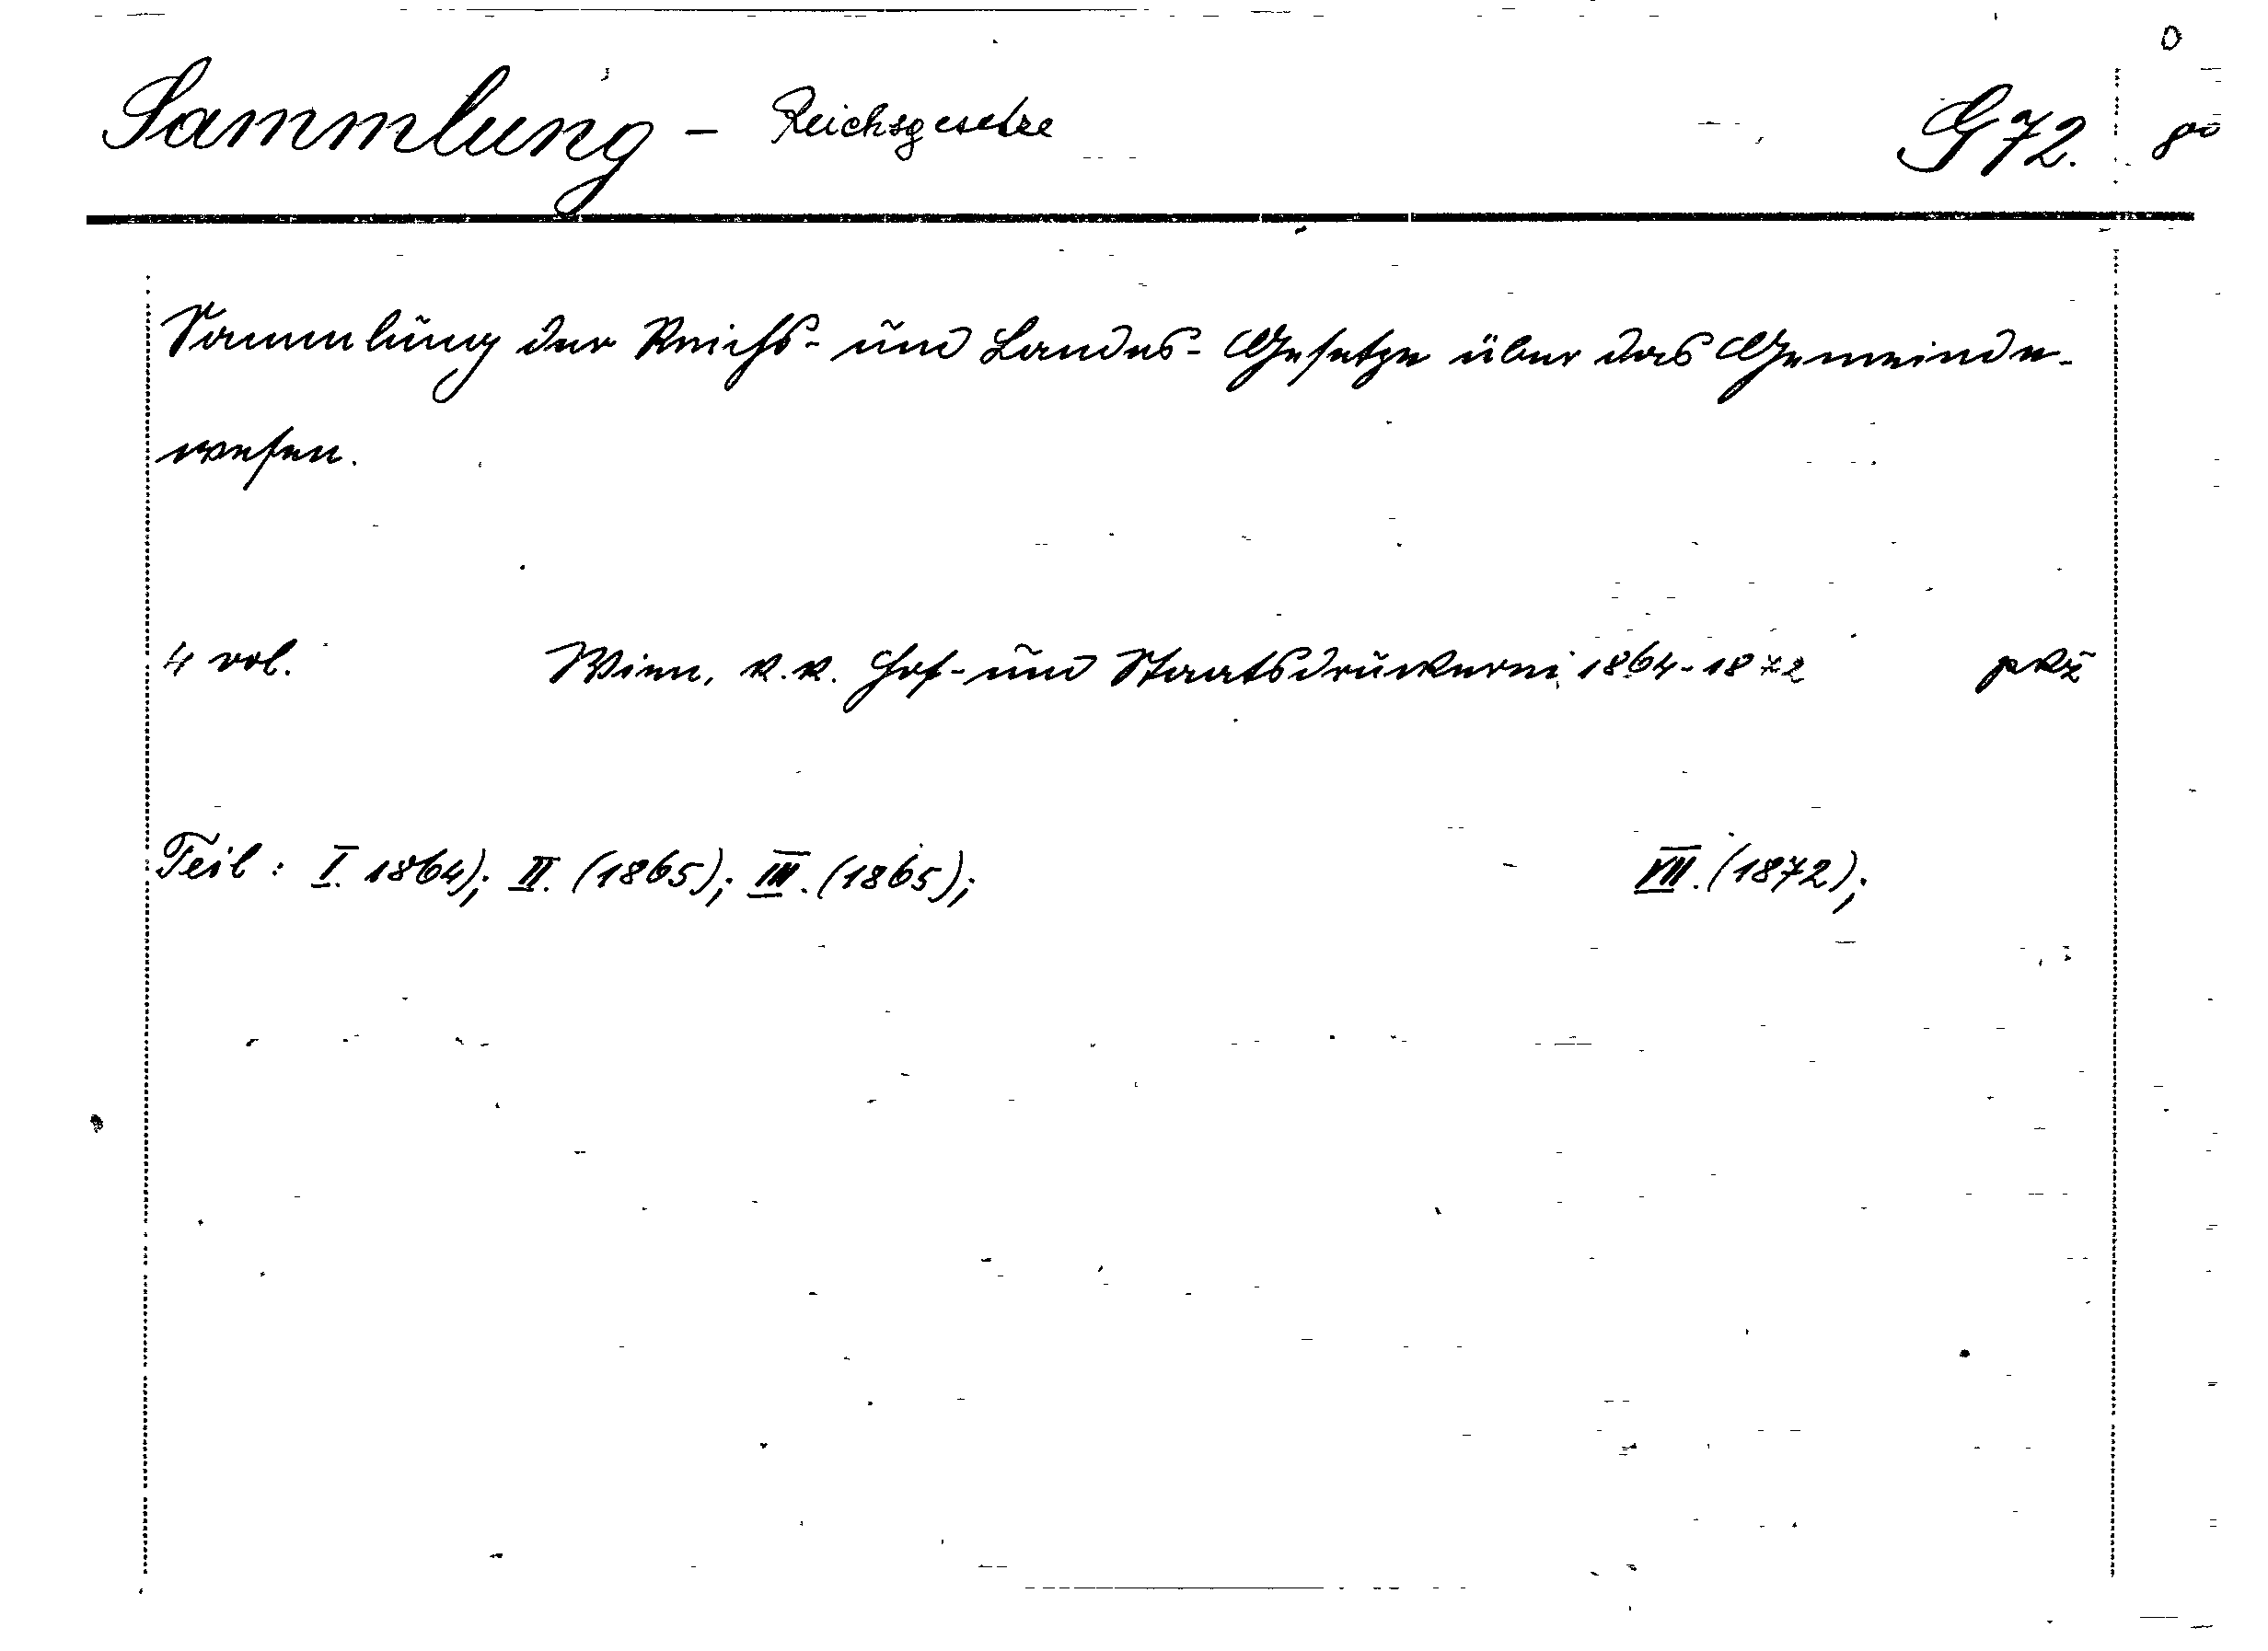 Sammlung - Reichsgesetze G 72. 8°
Sammlung der Reichs- und Landes- Gesetze über das Gemeinde-
wesen.
4 vol. Wien, k. k. Hof- und Staatsdruckerei 1864-1872
Teil: I. 1864); II. (1865); III. (1865); VII. (1872);